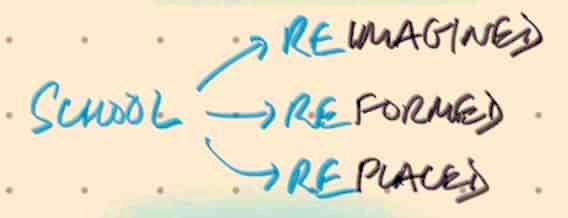 REIMAGINED
SCHOOL REFORMED
REPLACED